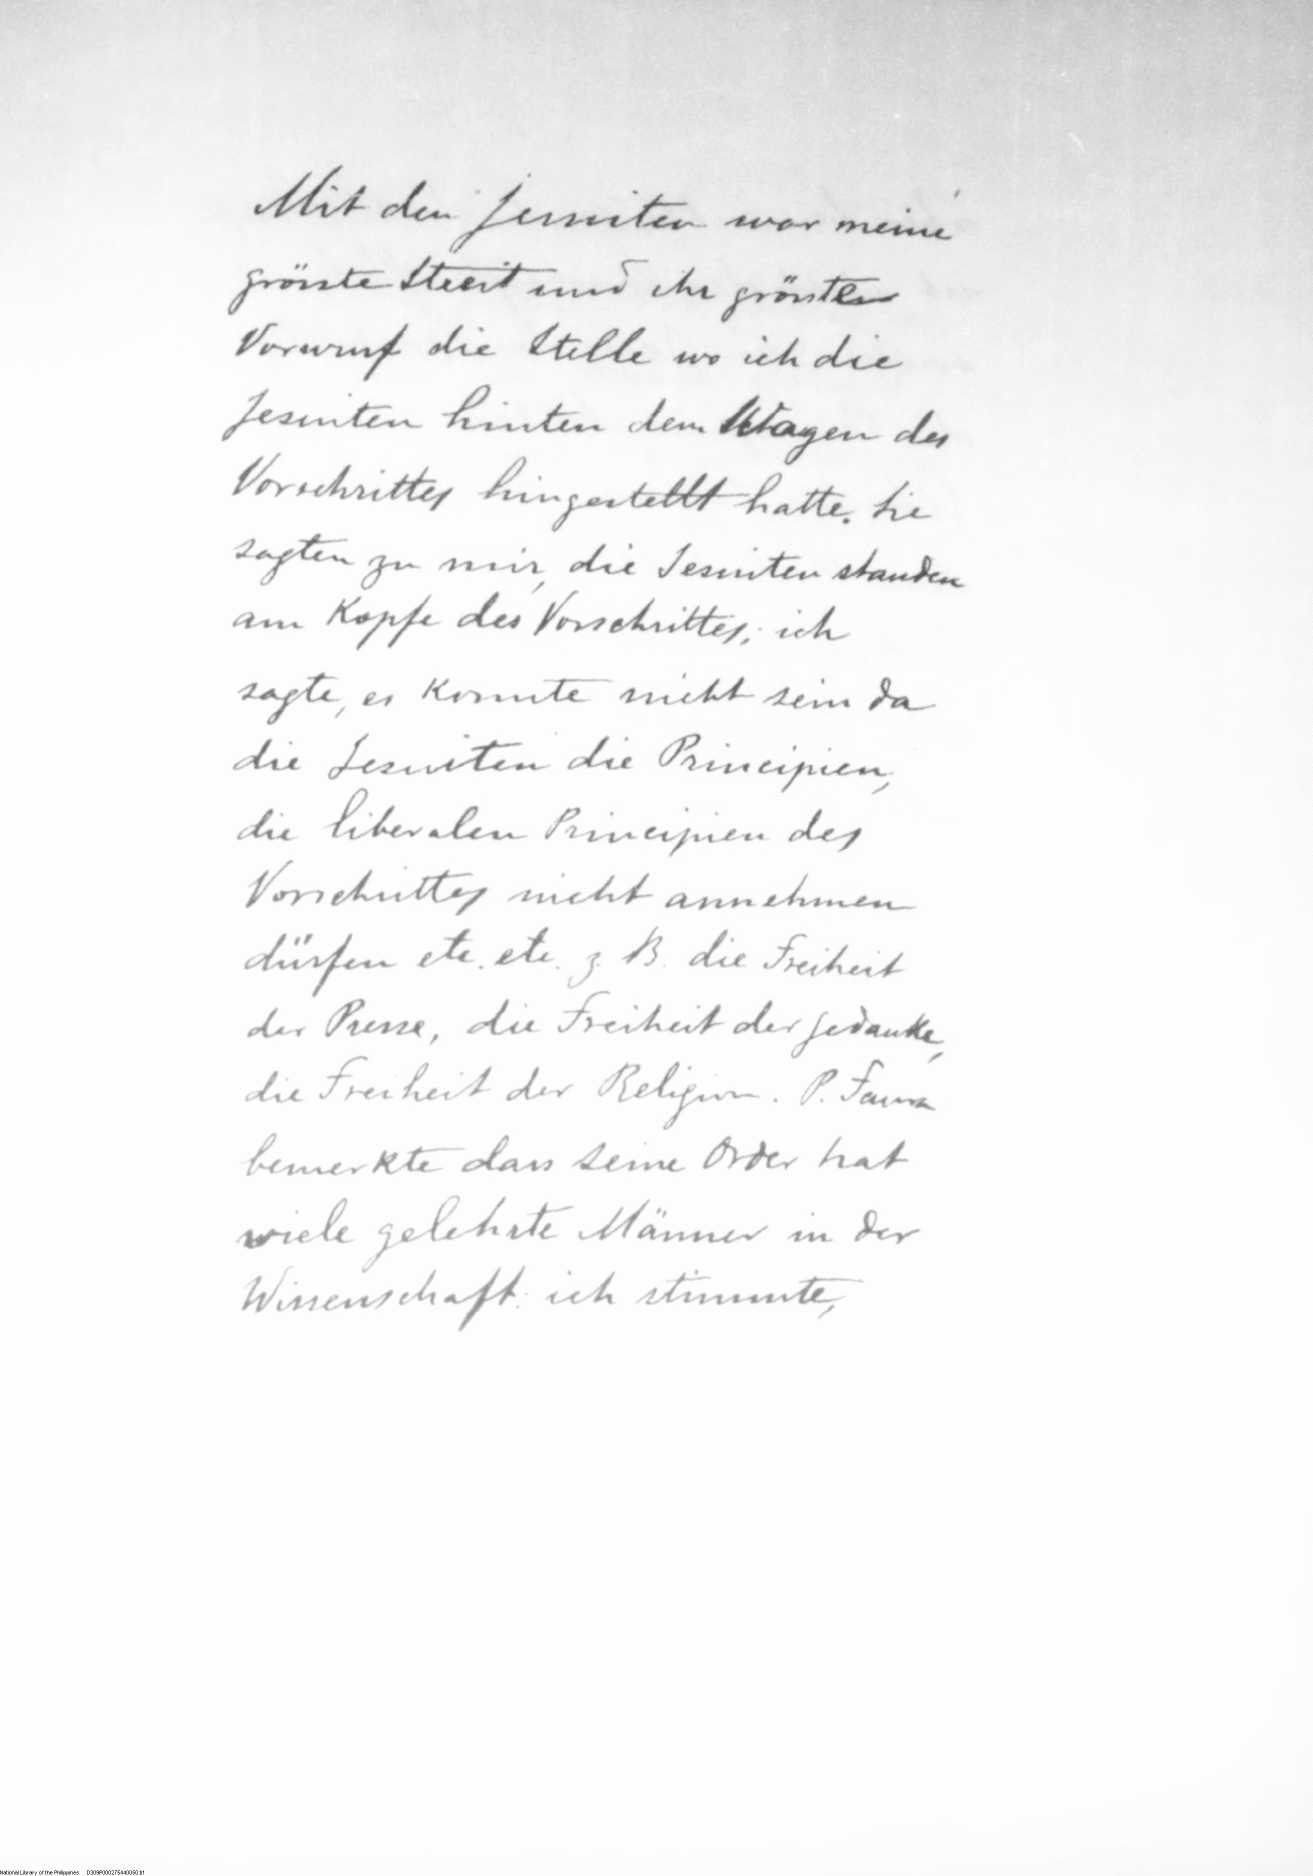 Mit den Jesuiten war meine
grösste Streit und ihr grössten
Vorwurf die Stelle wo ich die
Jesuiten hinten dem Wagen des
Vorschrittes hingestellt hatte. Sie
sagten zu mir, die Jesuiten standen
am Kopfe des Vorschrittes; ich
sagte, es konnte nicht sein da
die Jesuiten die Principien,
die liberalen Principien des
Vorschrittes nicht annehmen
dürfen etc. etc. z. B. die Freiheit
der Presse, die Freiheit der Gedanke,
die Freiheit der Religion. P. Faura
bemerkte dass seine Order hat
viele gelehrte Männer in der
Wissenschaft: ich stimmte,
National Library of the Philippines